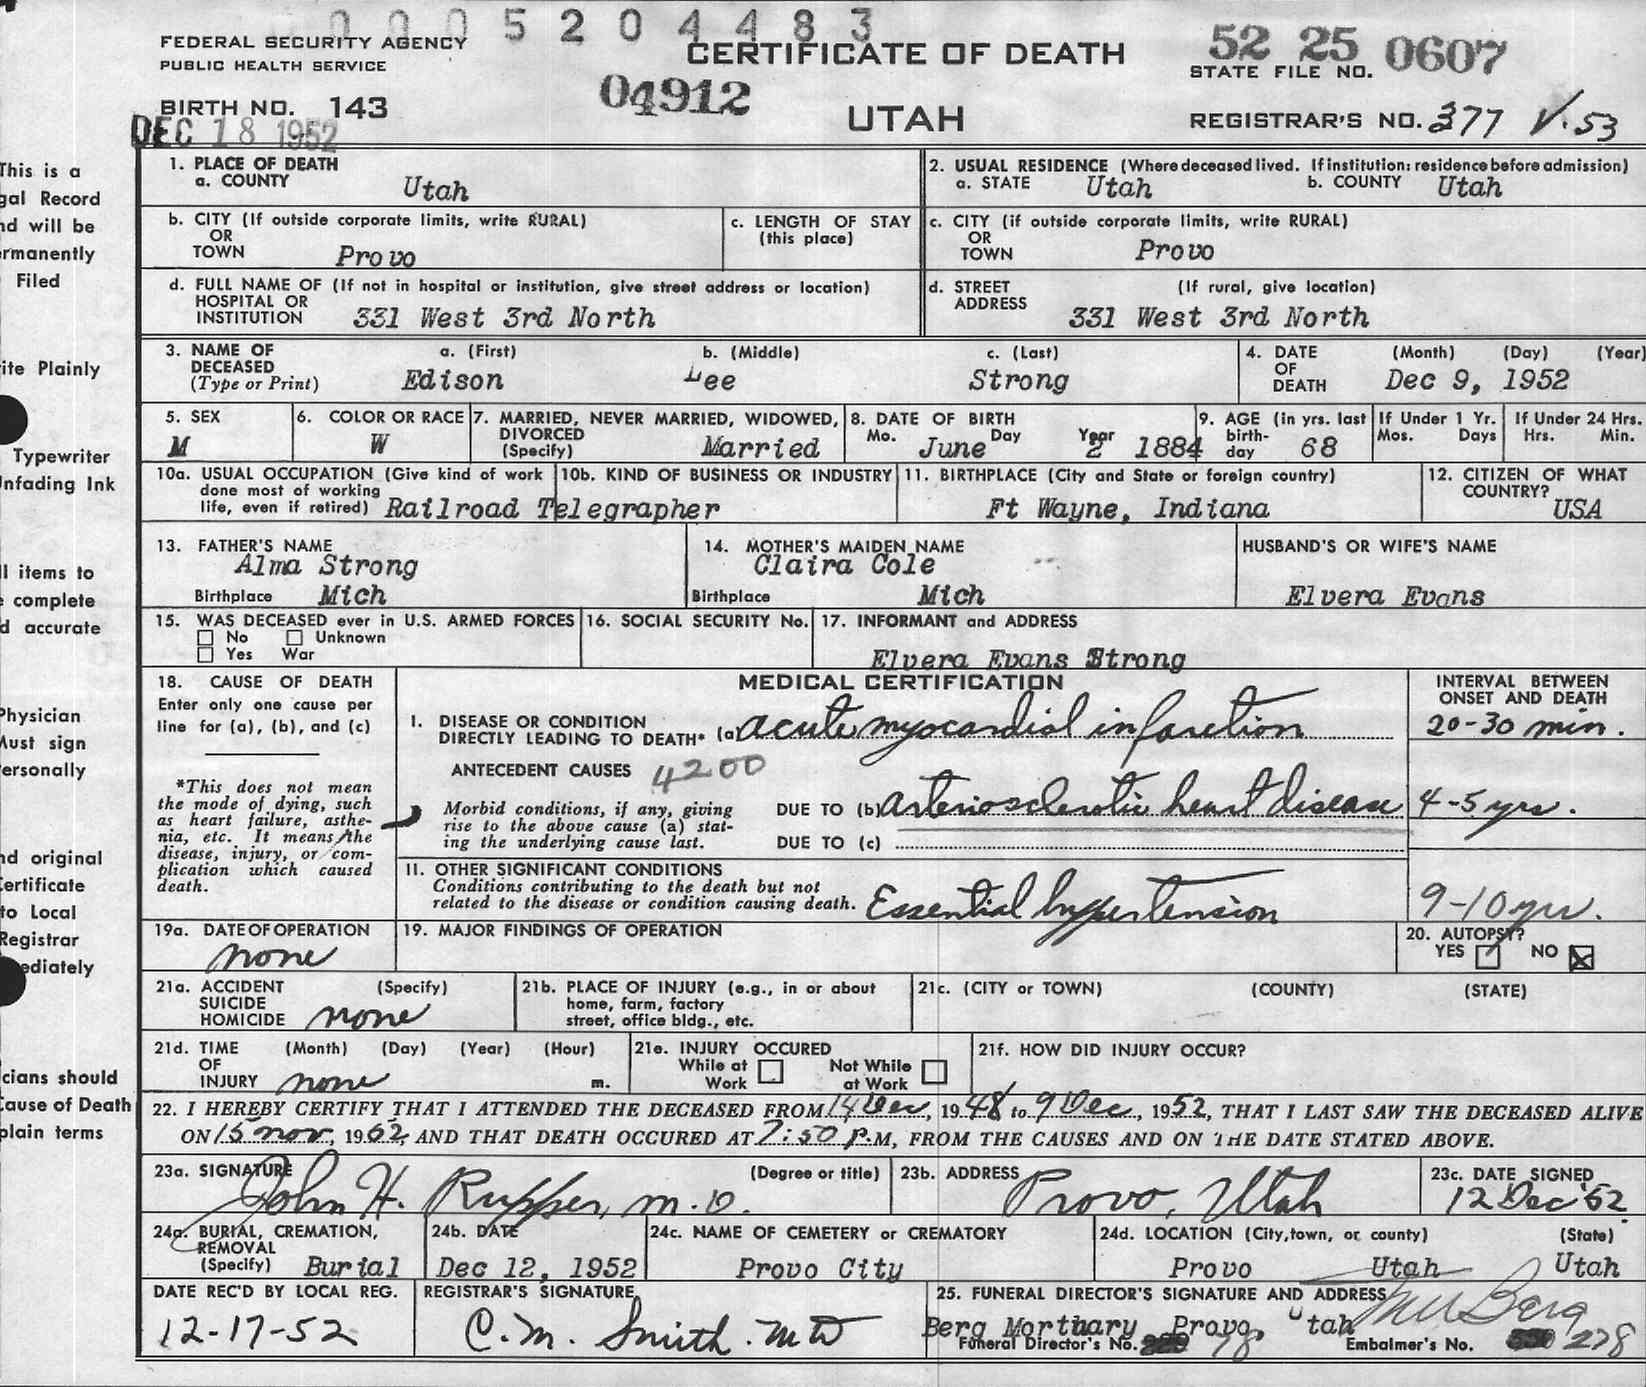 0005204483
FEDERAL SECURITY AGENCY
PUBLIC HEALTH SERVICE
CERTIFICATE OF DEATH
52 25 0607
STATE FILE NO.
BIRTH NO. 143
04912
UTAH
REGISTRAR'S NO. 377 V.53
DEC 18 1952
This is a
gal Record
nd will be
rmanently
Filed
ite Plainly
Typewriter
nfading Ink
ll items to
e complete
d accurate
Physician
Must sign
ersonally
nd original
Certificate
to Local
Registrar
ediately
icians should
Cause of Death
plain terms
1. PLACE OF DEATH
a. COUNTY Utah
2. USUAL RESIDENCE (Where deceased lived. If institution: residence before admission)
a. STATE Utah b. COUNTY Utah
b. CITY (If outside corporate limits, write RURAL)
OR
TOWN Provo
c. LENGTH OF STAY
(this place)
c. CITY (if outside corporate limits, write RURAL)
OR
TOWN Provo
d. FULL NAME OF (If not in hospital or institution, give street address or location)
HOSPITAL OR
INSTITUTION 331 West 3rd North
d. STREET (If rural, give location)
ADDRESS 331 West 3rd North
3. NAME OF DECEASED
(Type or Print)
a. (First) Edison
b. (Middle) Lee
c. (Last) Strong
4. DATE OF DEATH
(Month) (Day) (Year)
Dec 9, 1952
5. SEX
M
6. COLOR OR RACE
W
7. MARRIED, NEVER MARRIED, WIDOWED,
DIVORCED
(Specify) Married
8. DATE OF BIRTH
Mo. June Day 2 Year 1884
9. AGE (in yrs. last
birth-
day 68
If Under 1 Yr.
Mos. Days
If Under 24 Hrs.
Hrs. Min.
10a. USUAL OCCUPATION (Give kind of work
done most of working
life, even if retired) Railroad Telegrapher
10b. KIND OF BUSINESS OR INDUSTRY
11. BIRTHPLACE (City and State or foreign country)
Ft Wayne, Indiana
12. CITIZEN OF WHAT
COUNTRY?
USA
13. FATHER'S NAME
Alma Strong
Birthplace Mich
14. MOTHER'S MAIDEN NAME
Claira Cole
Birthplace Mich
HUSBAND'S OR WIFE'S NAME
Elvera Evans
15. WAS DECEASED ever in U.S. ARMED FORCES
No Unknown
Yes War
16. SOCIAL SECURITY No.
17. INFORMANT and ADDRESS
Elvera Evans Strong
18. CAUSE OF DEATH
Enter only one cause per
line for (a), (b), and (c)
*This does not mean
the mode of dying, such
as heart failure, asthe-
nia, etc. It means the
disease, injury, or com-
plication which caused
death.
MEDICAL CERTIFICATION
INTERVAL BETWEEN
ONSET AND DEATH
I. DISEASE OR CONDITION
DIRECTLY LEADING TO DEATH* (a) acute myocardial infarction 20-30 min.
ANTECEDENT CAUSES 4200
Morbid conditions, if any, giving
rise to the above cause (a) stat-
ing the underlying cause last.
DUE TO (b) arteriosclerotic heart disease 4-5 yrs.
DUE TO (c)
II. OTHER SIGNIFICANT CONDITIONS
Conditions contributing to the death but not
related to the disease or condition causing death. Essential hypertension 9-10 yrs.
19a. DATE OF OPERATION
none
19. MAJOR FINDINGS OF OPERATION
20. AUTOPSY?
YES NO
21a. ACCIDENT (Specify)
SUICIDE
HOMICIDE none
21b. PLACE OF INJURY (e.g., in or about
home, farm, factory
street, office bldg., etc.
21c. (CITY or TOWN) (COUNTY) (STATE)
21d. TIME (Month) (Day) (Year) (Hour)
OF
INJURY none m.
21e. INJURY OCCURED
While at Work Not While at Work
21f. HOW DID INJURY OCCUR?
22. I HEREBY CERTIFY THAT I ATTENDED THE DECEASED FROM 14 Dec, 1948 to 9 Dec, 1952, THAT I LAST SAW THE DECEASED ALIVE
ON 15 nov, 1952, AND THAT DEATH OCCURED AT 7:50 P.M, FROM THE CAUSES AND ON THE DATE STATED ABOVE.
23a. SIGNATURE (Degree or title)
John H. Rupper, M.D.
23b. ADDRESS Provo, Utah
23c. DATE SIGNED
12 Dec '52
24a. BURIAL, CREMATION,
REMOVAL
(Specify) Burial
24b. DATE
Dec 12, 1952
24c. NAME OF CEMETERY or CREMATORY
Provo City
24d. LOCATION (City, town, or county) (State)
Provo Utah Utah
DATE REC'D BY LOCAL REG.
12-17-52
REGISTRAR'S SIGNATURE
C.M. Smith. MD
25. FUNERAL DIRECTOR'S SIGNATURE AND ADDRESS
Berg Mortuary Provo, Utah Berg
Funeral Director's No. 78 Embalmer's No. 278